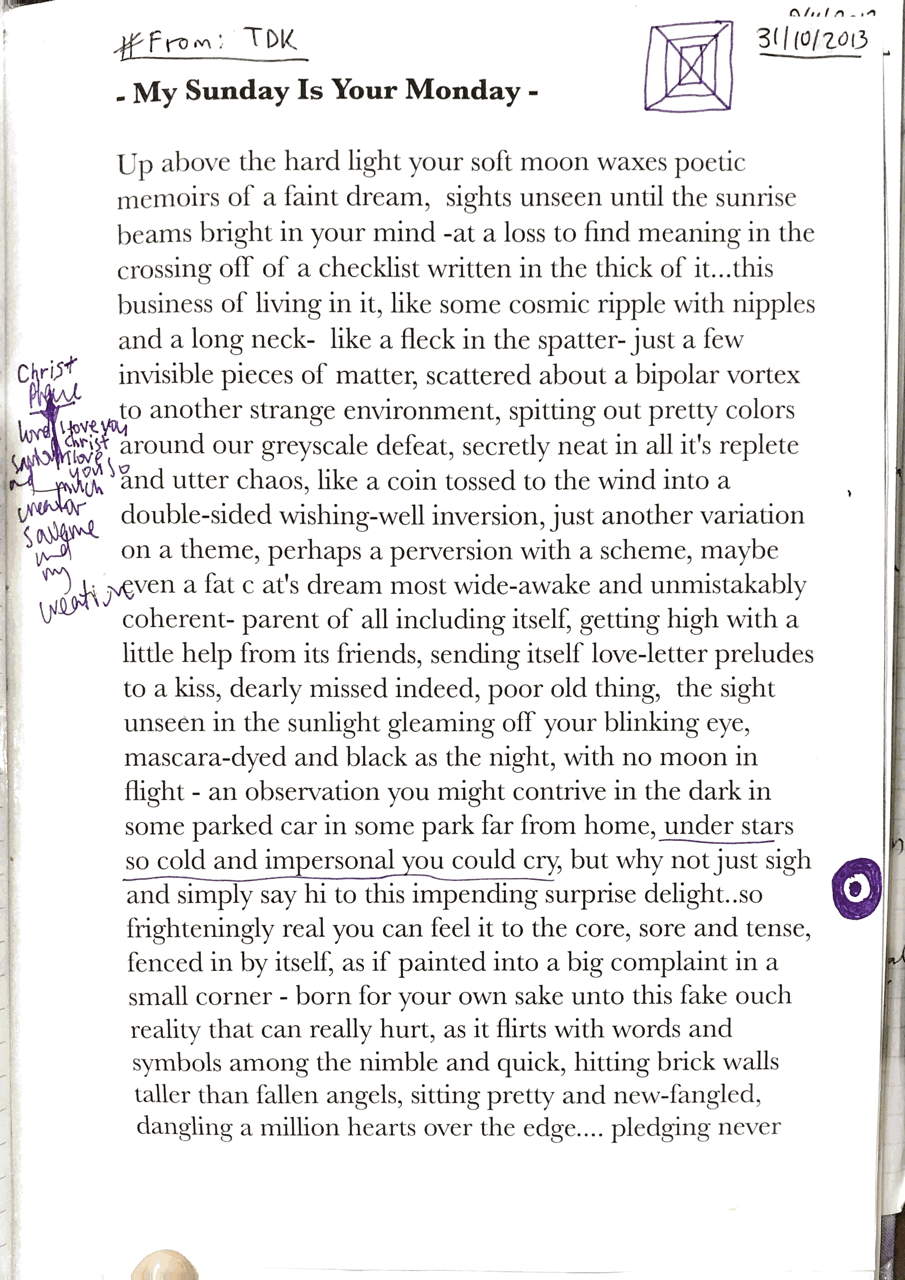 #From: TDK
31/10/2013
- My Sunday Is Your Monday -
Up above the hard light your soft moon waxes poetic
memoirs of a faint dream, sights unseen until the sunrise
beams bright in your mind -at a loss to find meaning in the
crossing off of a checklist written in the thick of it...this
business of living in it, like some cosmic ripple with nipples
and a long neck- like a fleck in the spatter- just a few
invisible pieces of matter, scattered about a bipolar vortex
to another strange environment, spitting out pretty colors
around our greyscale defeat, secretly neat in all it's replete
and utter chaos, like a coin tossed to the wind into a
double-sided wishing-well inversion, just another variation
on a theme, perhaps a perversion with a scheme, maybe
even a fat c at's dream most wide-awake and unmistakably
coherent- parent of all including itself, getting high with a
little help from its friends, sending itself love-letter preludes
to a kiss, dearly missed indeed, poor old thing, the sight
unseen in the sunlight gleaming off your blinking eye,
mascara-dyed and black as the night, with no moon in
flight - an observation you might contrive in the dark in
some parked car in some park far from home, under stars
so cold and impersonal you could cry, but why not just sigh
and simply say hi to this impending surprise delight..so
frighteningly real you can feel it to the core, sore and tense,
fenced in by itself, as if painted into a big complaint in a
small corner - born for your own sake unto this fake ouch
reality that can really hurt, as it flirts with words and
symbols among the nimble and quick, hitting brick walls
taller than fallen angels, sitting pretty and new-fangled,
dangling a million hearts over the edge.... pledging never
Christ
lord
I love you
Christ
I love
you so
much
creator
save me
and
my